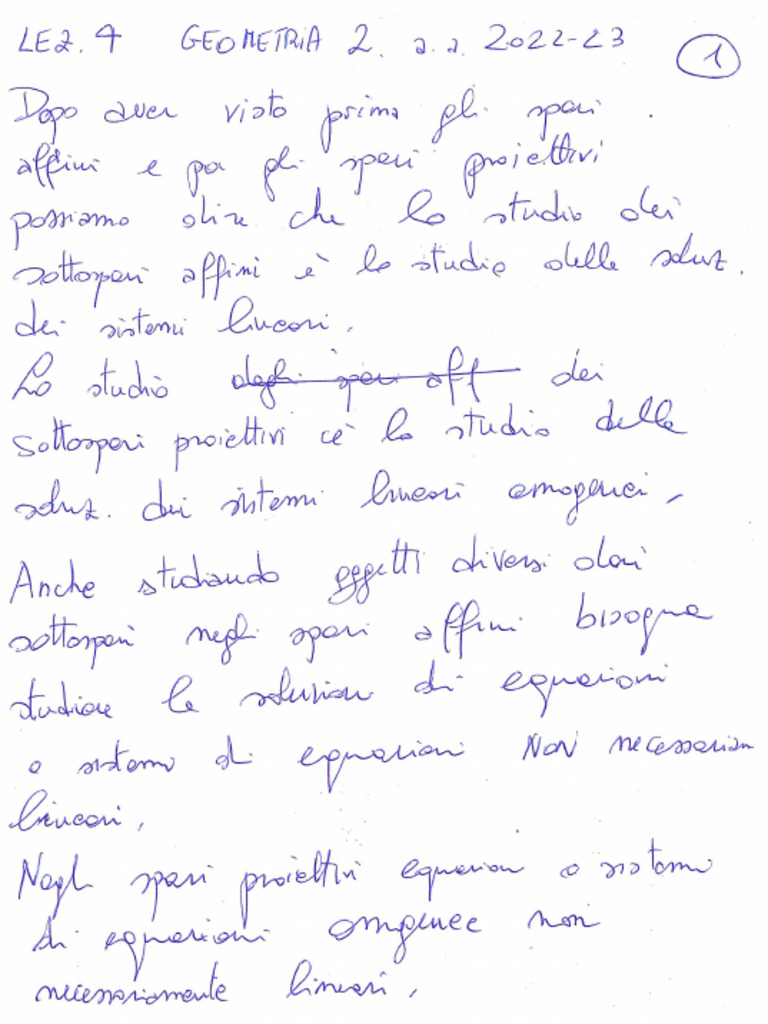 LEZ. 4 GEOMETRIA 2. a.a. 2022-23 1
Dopo aver visto prima gli spazi
affini e poi gli spazi proiettivi
possiamo dire che lo studio dei
sottospazi affini è lo studio delle soluz.
dei sistemi lineari.
Lo studio degli spazi aff dei
sottospazi proiettivi è lo studio delle
soluz. dei sistemi lineari omogenei.
Anche studiando oggetti diversi dai
sottospazi negli spazi affini bisogna
studiare le soluzioni di equazioni
o sistemi di equazioni NON necessariam
lineari.
Negli spazi proiettivi equazioni o sistemi
di equazioni omogenee non
necessariamente lineari.